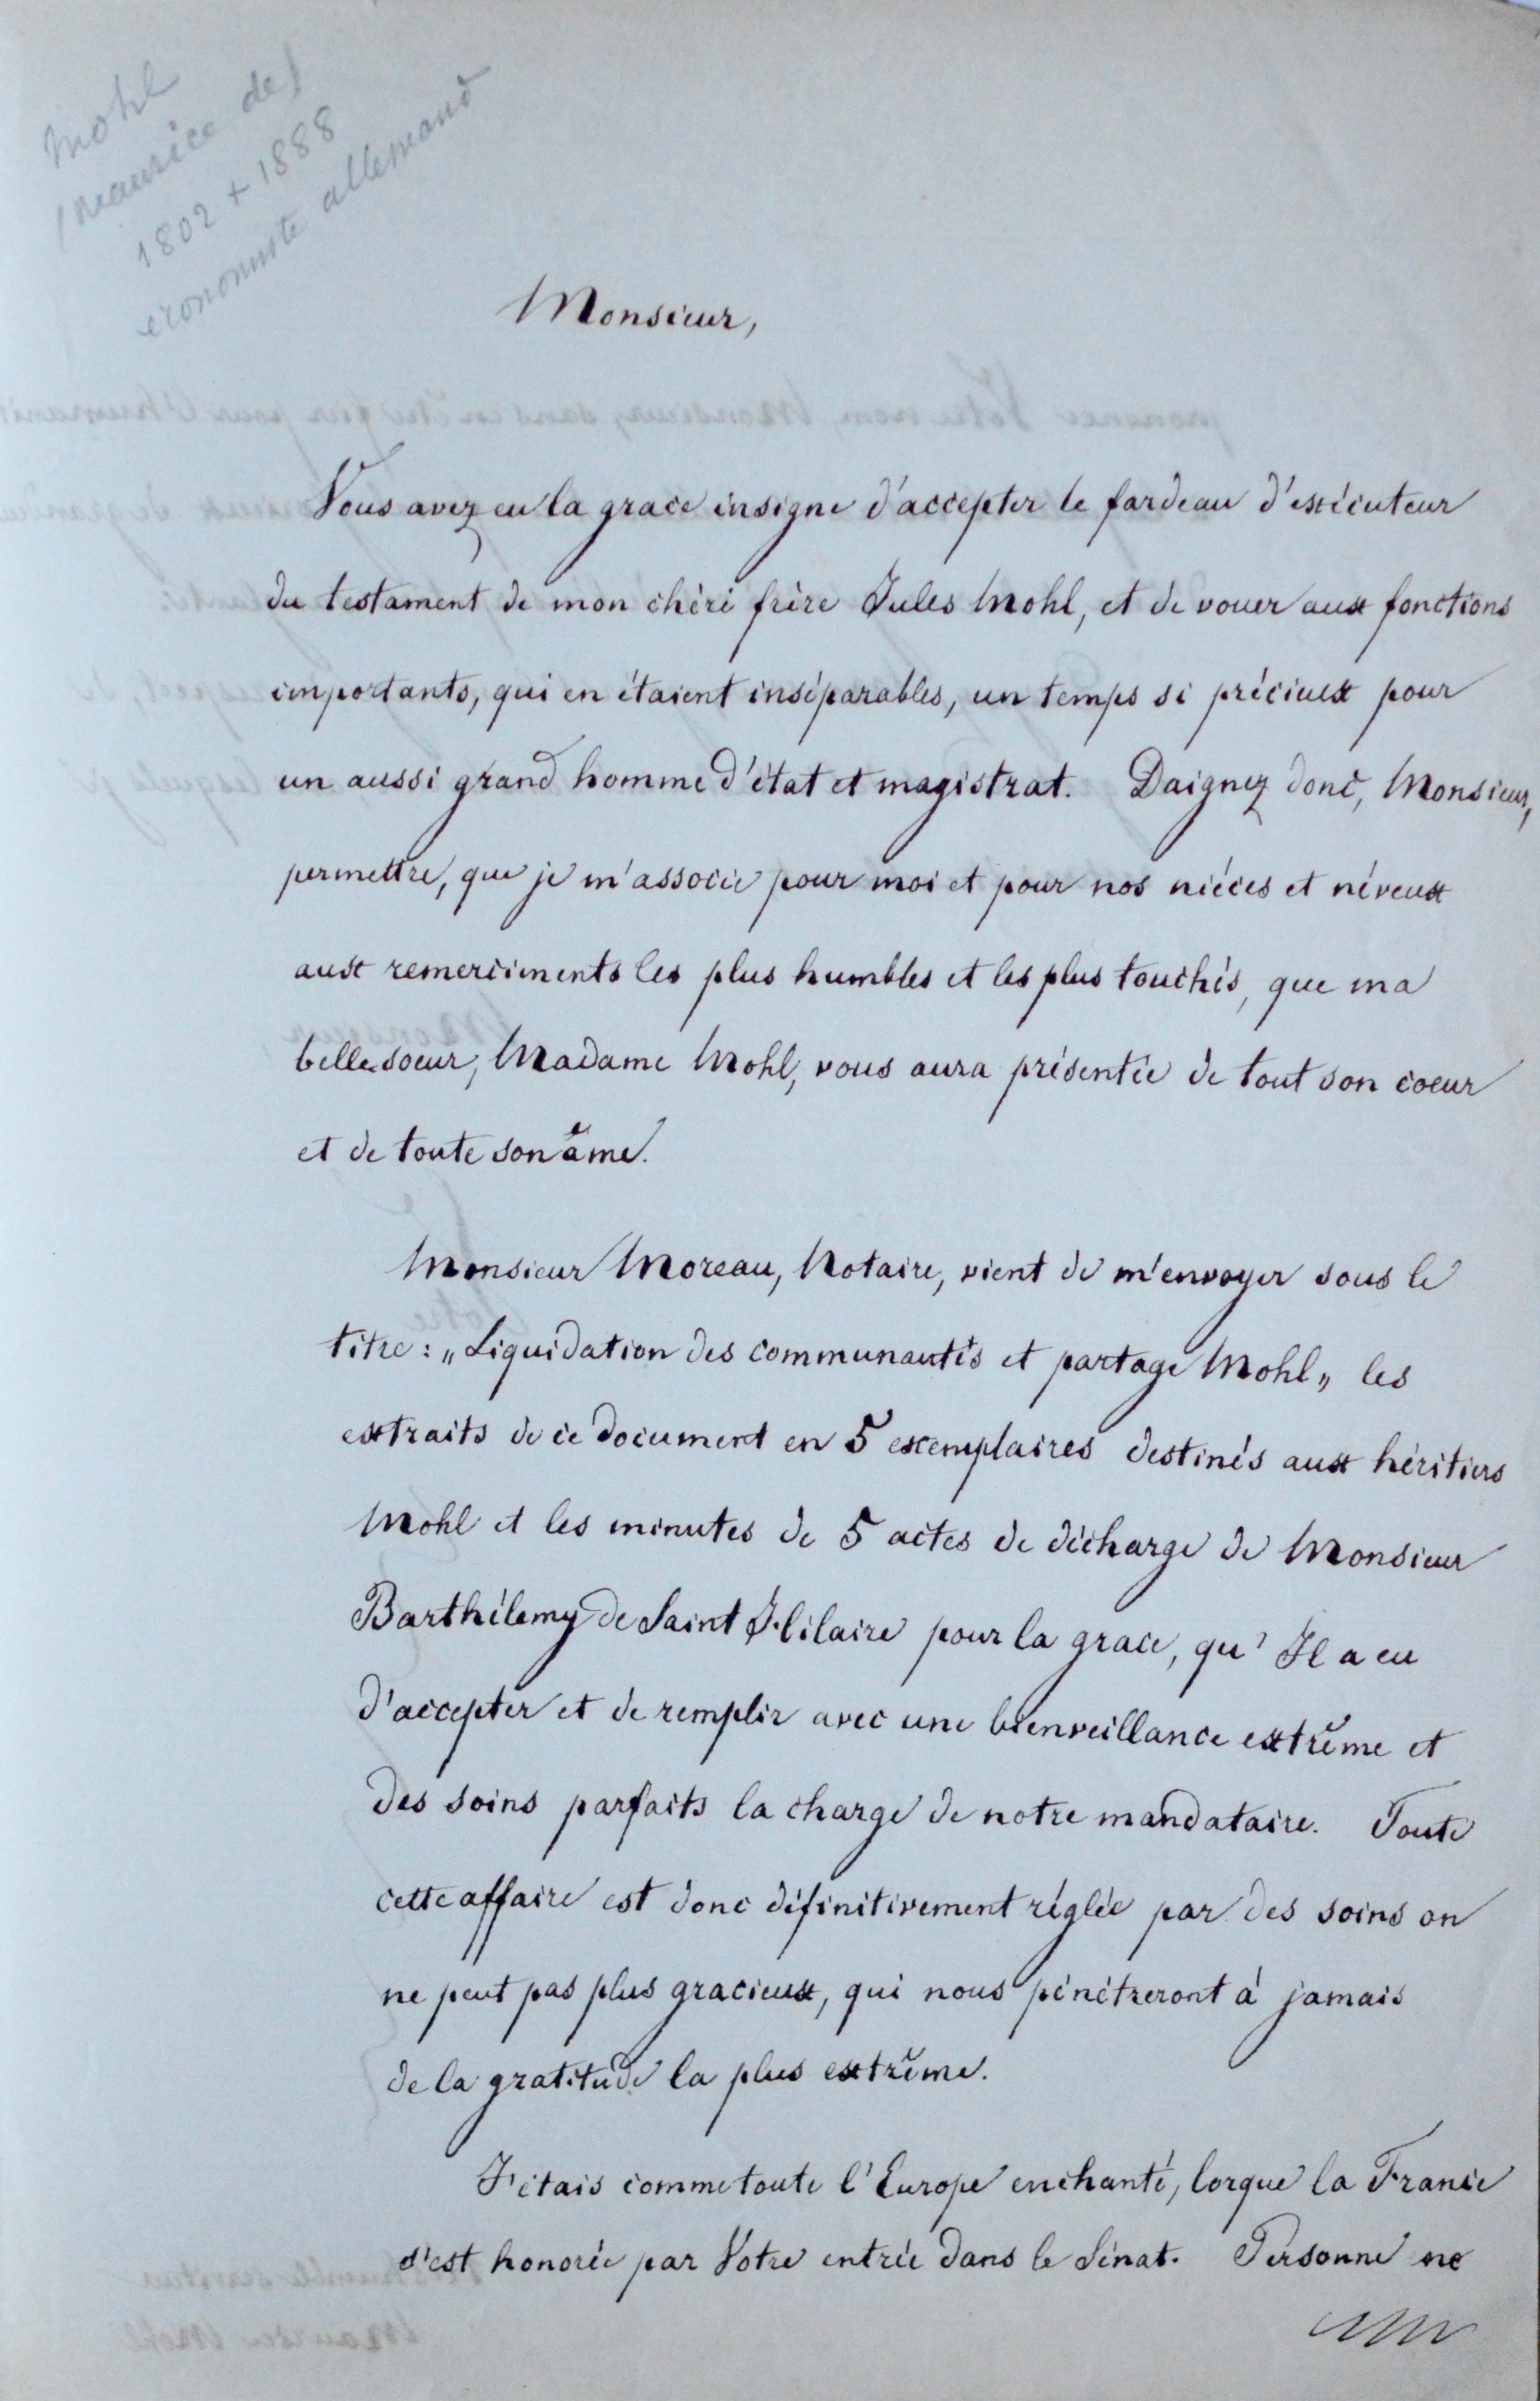 Mohl
(Maurice de)
1802 + 1888
economiste allemand
Monsieur,
Vous avez eu la grace insigne d'accepter le fardeau d'exécuteur
du testament de mon chéri frère Jules Mohl, et de vouer aux fonctions
importants, qui en étaient inséparables, un temps si précieux pour
un aussi grand homme d'état et magistrat. Daignez donc, Monsieur,
permettre, que je m'associe pour moi et pour nos nièces et néveux
aux remerciments les plus humbles et les plus touchés, que ma
belle-soeur, Madame Mohl, vous aura présentée de tout son coeur
et de toute son âme.
Monsieur Moreau, Notaire, vient de m'envoyer sous le
titre: „Liquidation des communautés et partage Mohl„ les
extraits de ce document en 5 exemplaires destinés aux héritiers
Mohl et les minutes de 5 actes de décharge de Monsieur
Barthélemy de Saint Hilaire pour la grace, qu' Il a eu
d'accepter et de remplir avec une bienveillance extrême et
des soins parfaits la charge de notre mandataire. Toute
cette affaire est donc définitivement réglée par des soins on
ne peut pas plus gracieux, qui nous pénétreront à jamais
de la gratitude la plus extrême.
J'étais comme toute l'Europe enchanté, lorque la France
s'est honorée par Votre entrée dans le Sénat. Personne ne